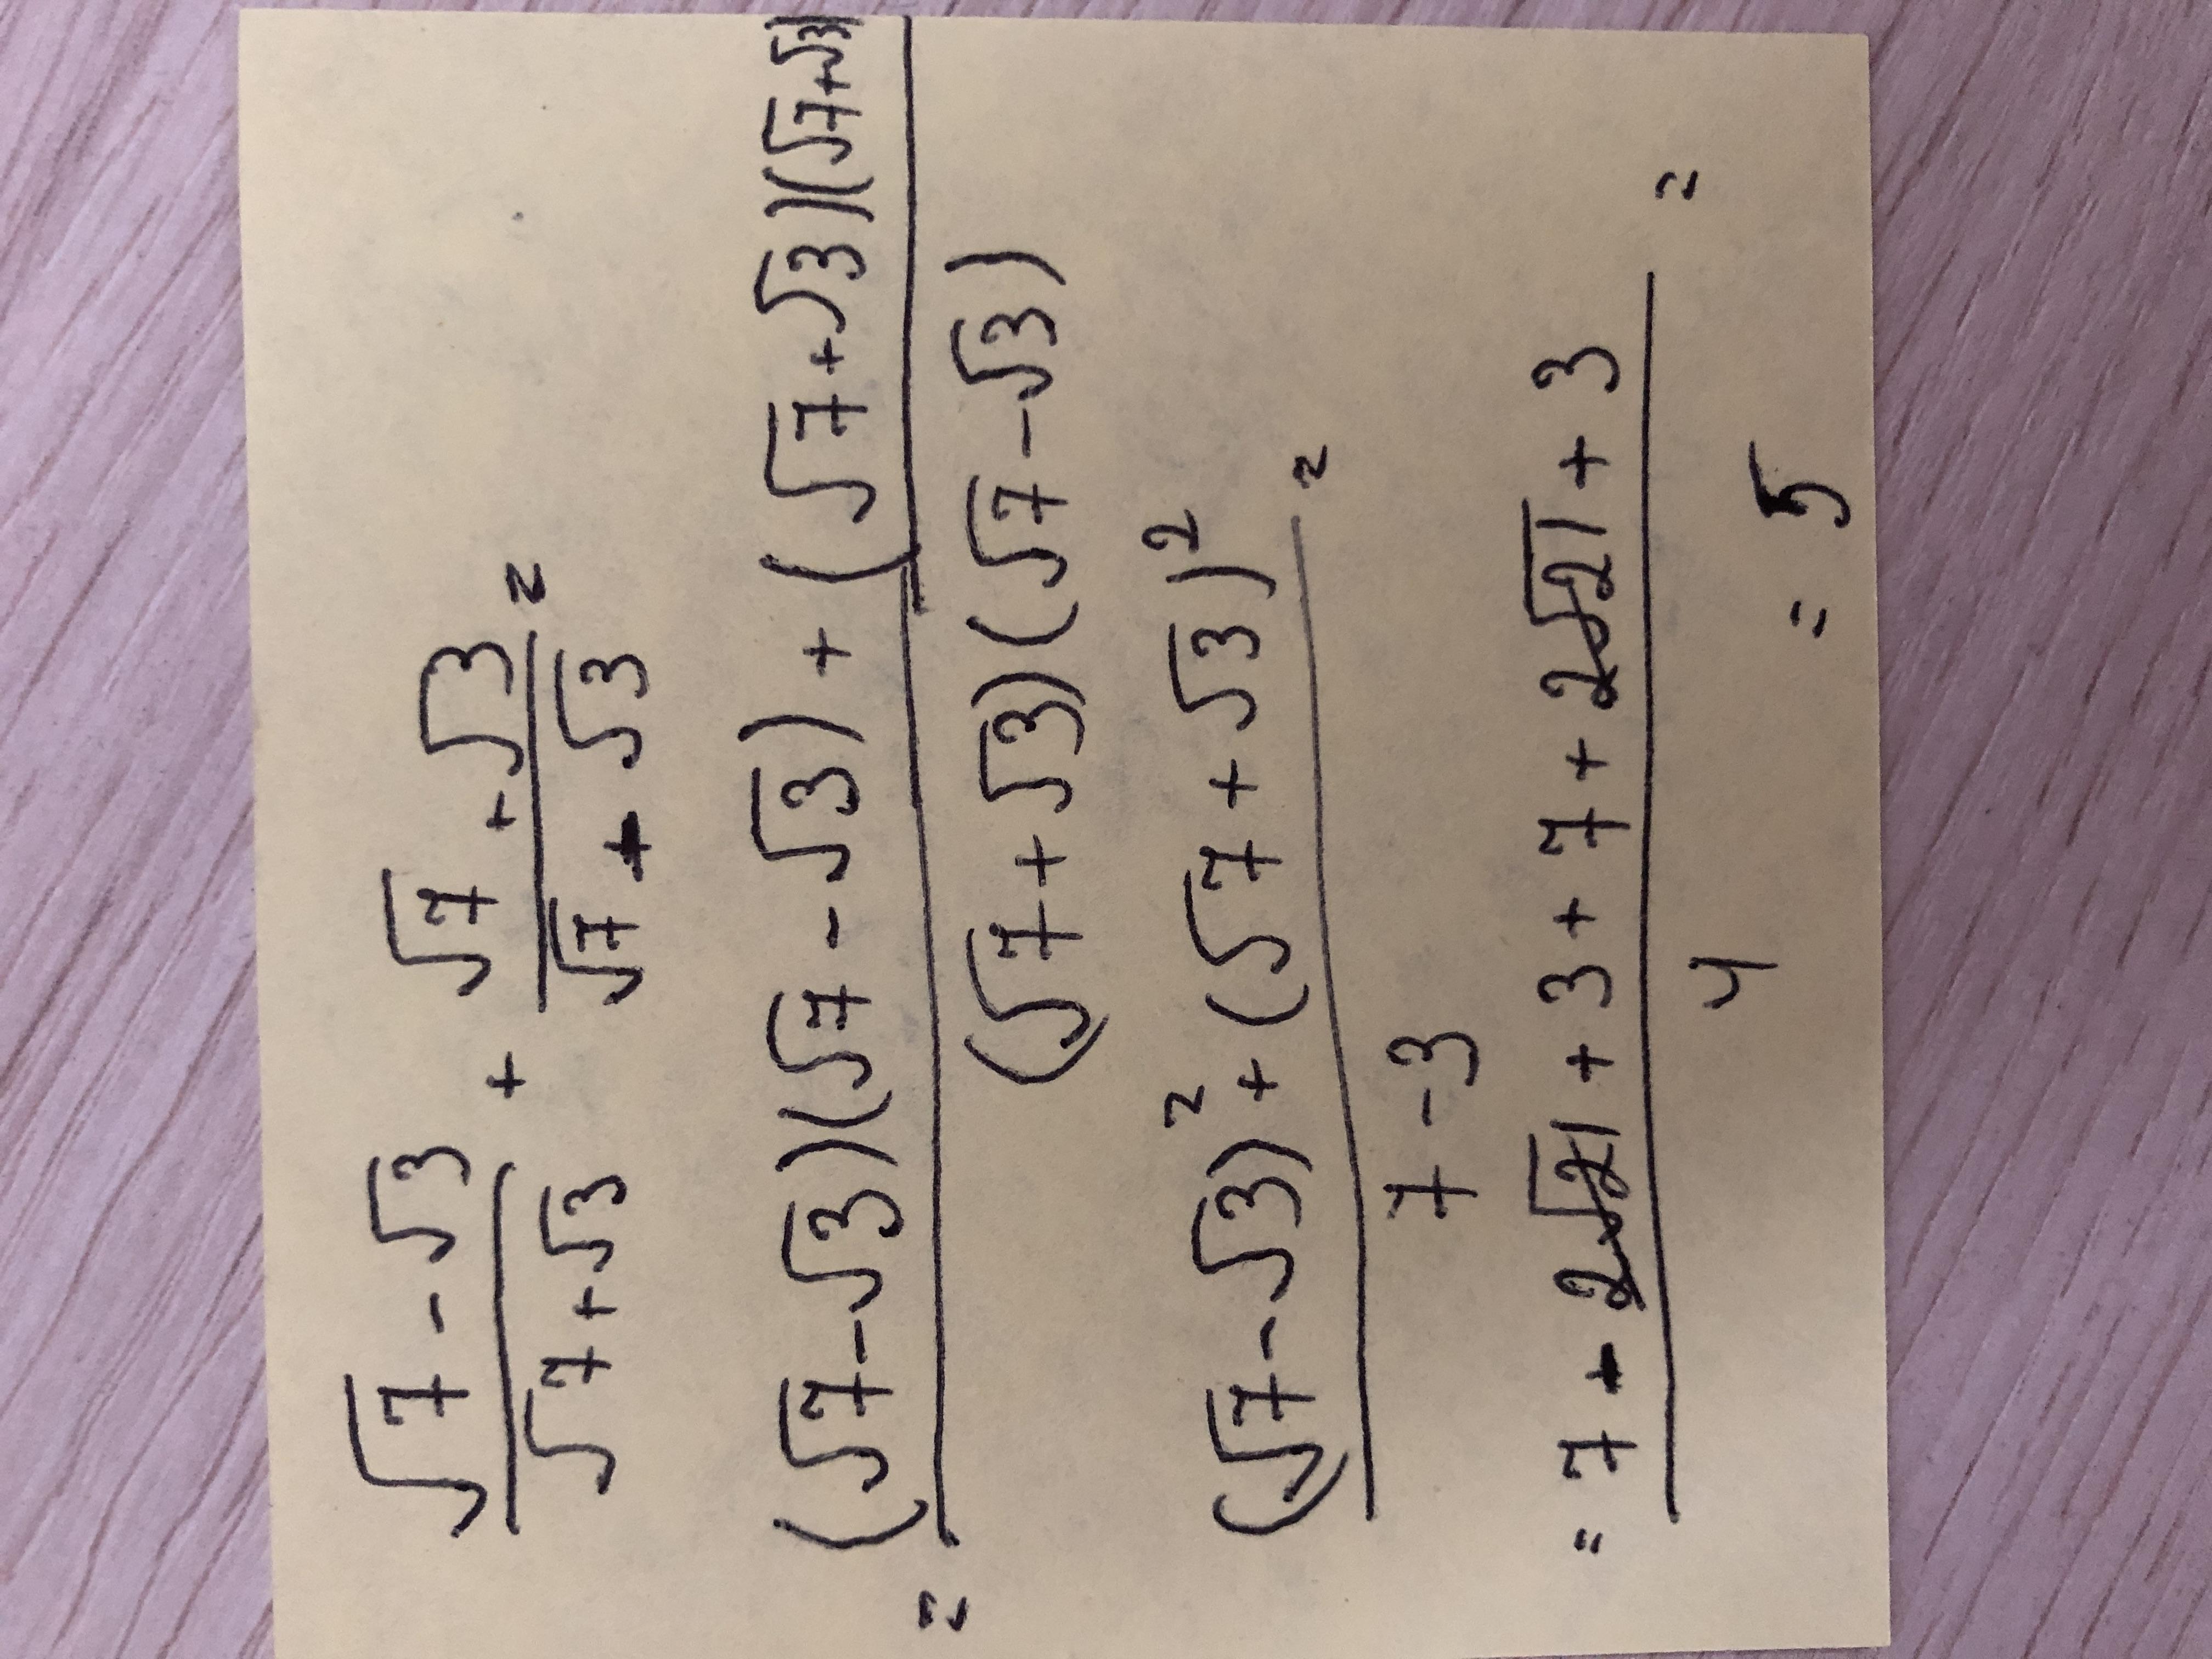 (√7 - √3)/(√7 + √3) + (√7 + √3)/(√7 + √3) =
= ((√7 - √3)(√7 - √3) + (√7 + √3)(√7 + √3))/((√7 + √3)(√7 - √3))
((√7 - √3)² + (√7 + √3)²)/(7 - 3) =
= (7 + 2√21 + 3 + 7 + 2√21 + 3)/4 =
= 5